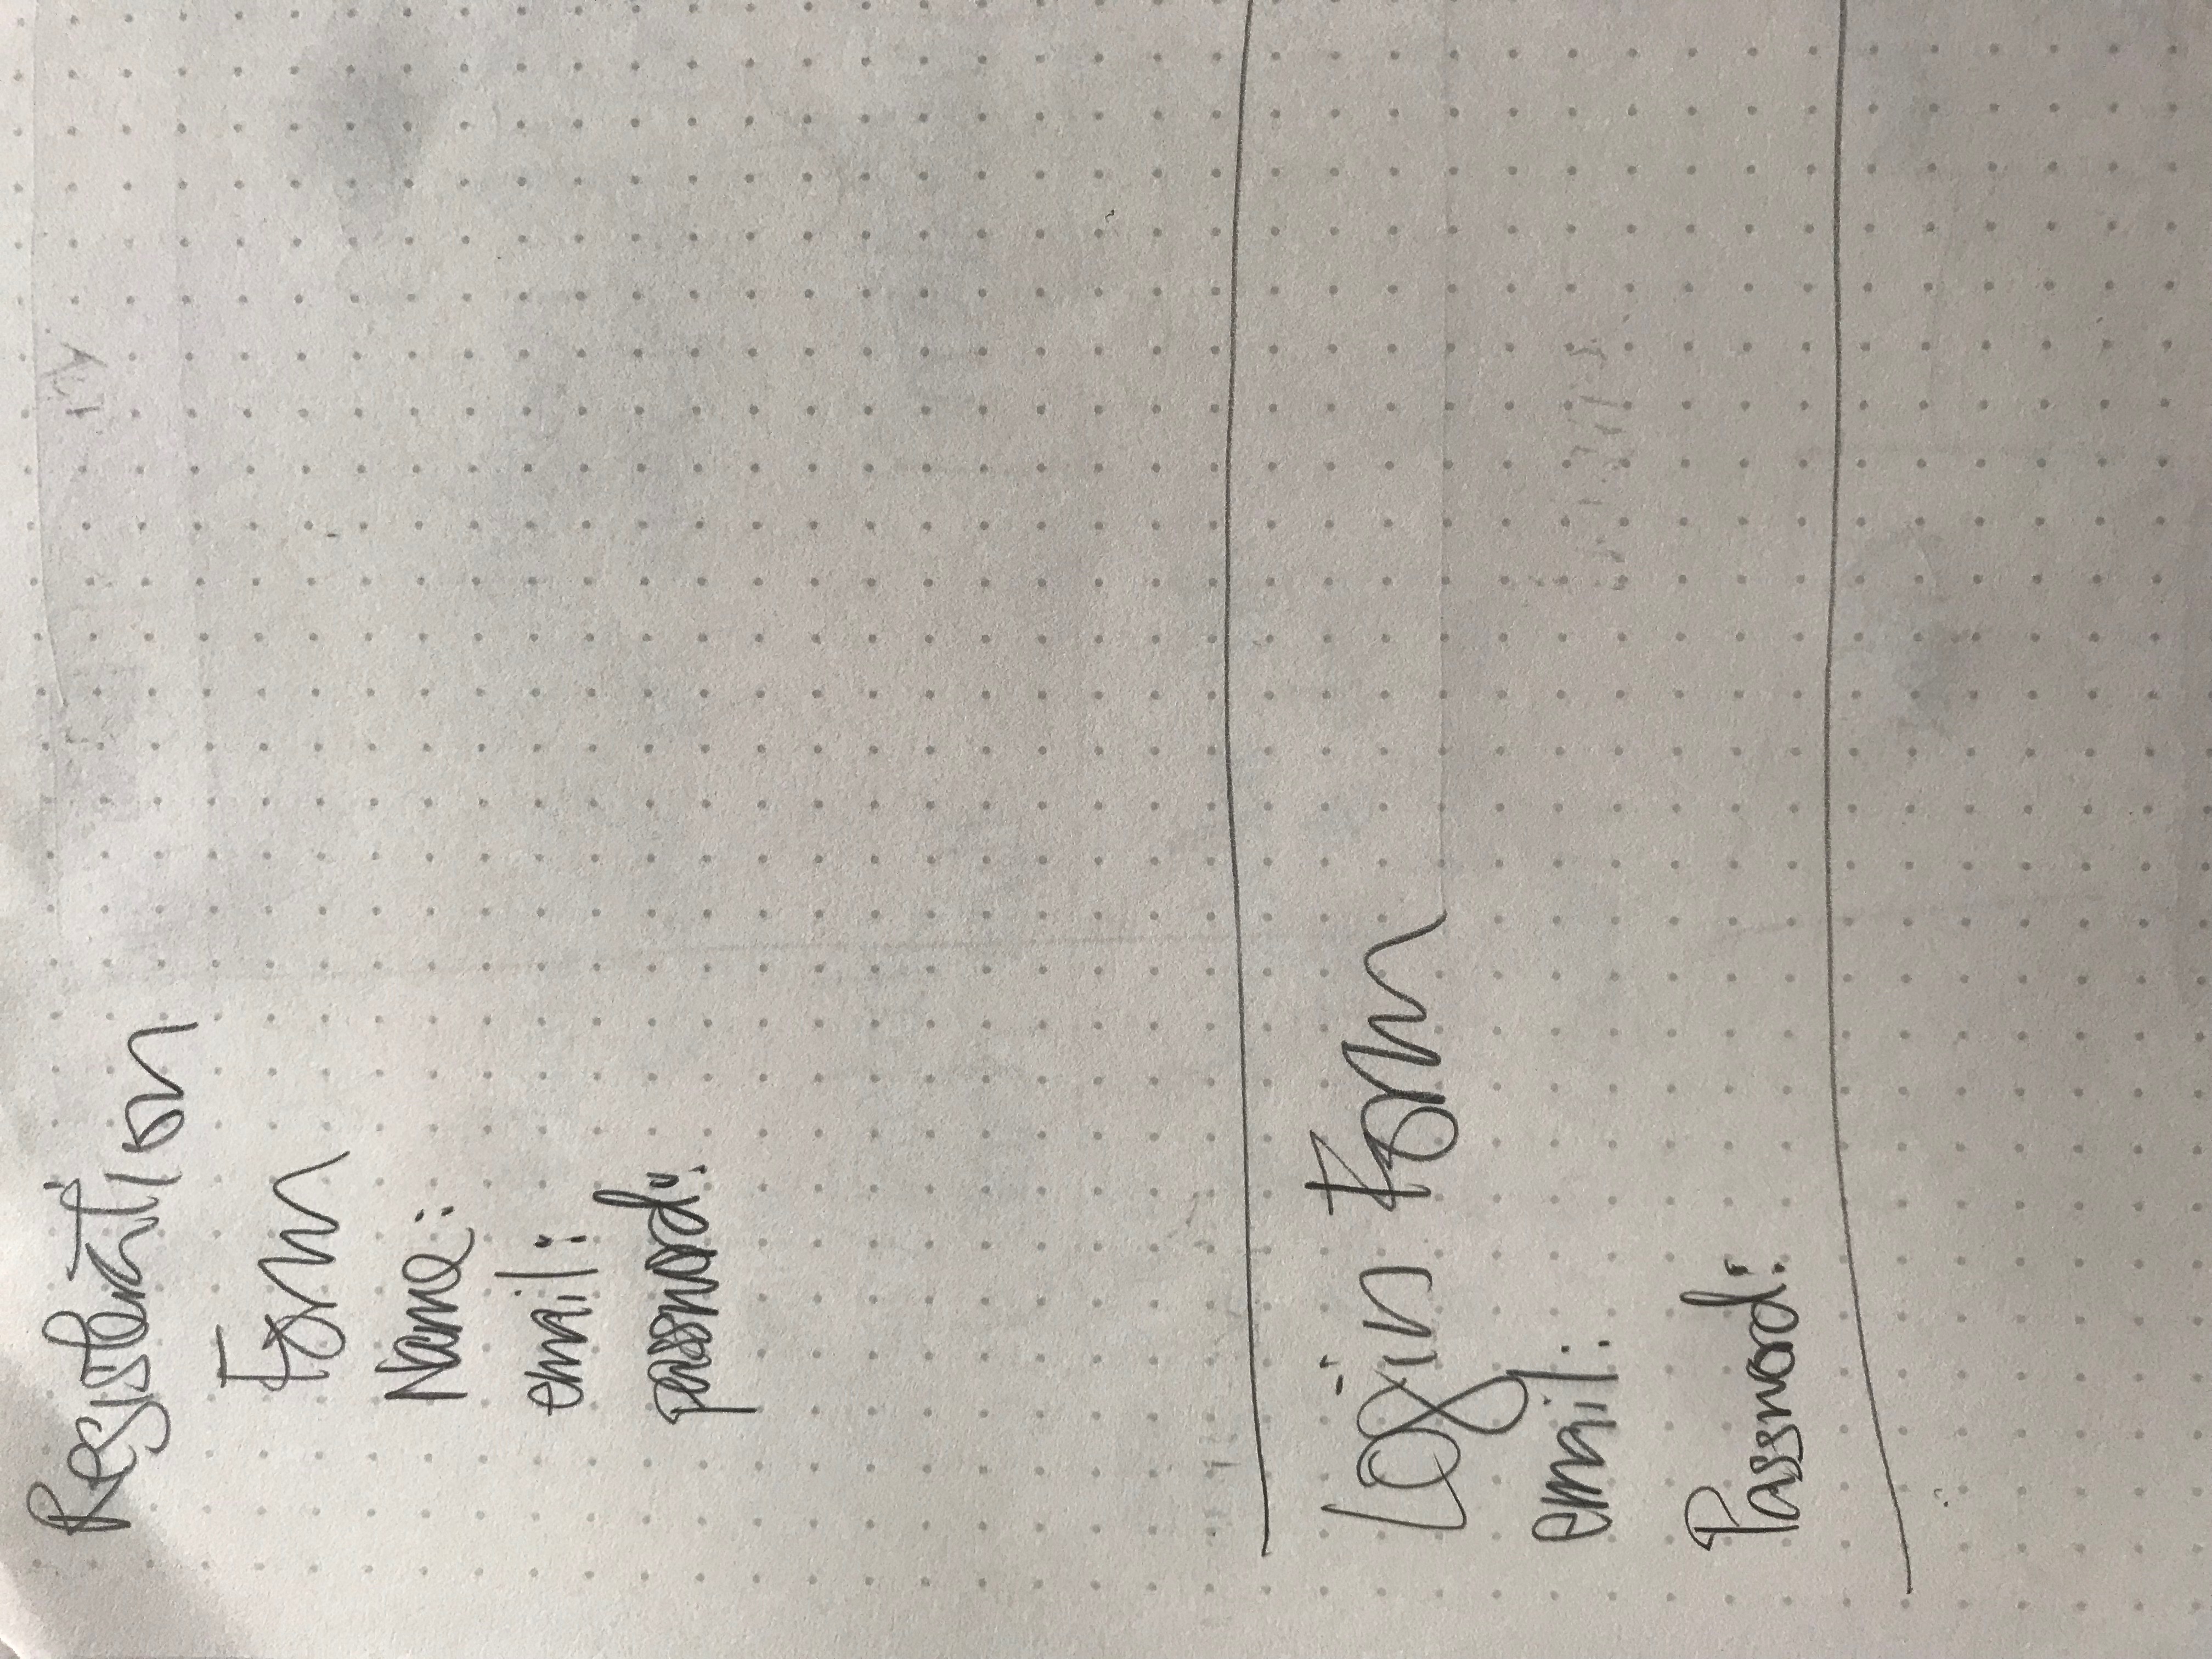 Registeration
Form
Name:
email:
password:
Login Form
email:
Password: